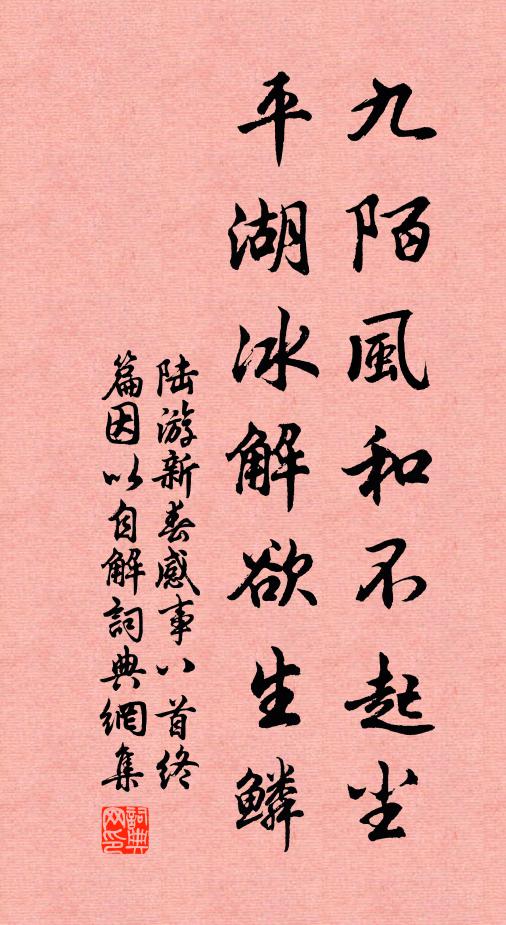 九陌風和不起尘
平湖冰解欲生鱗
陆游新春感事八首终
篇因以自解詞典網集
詞典
网印